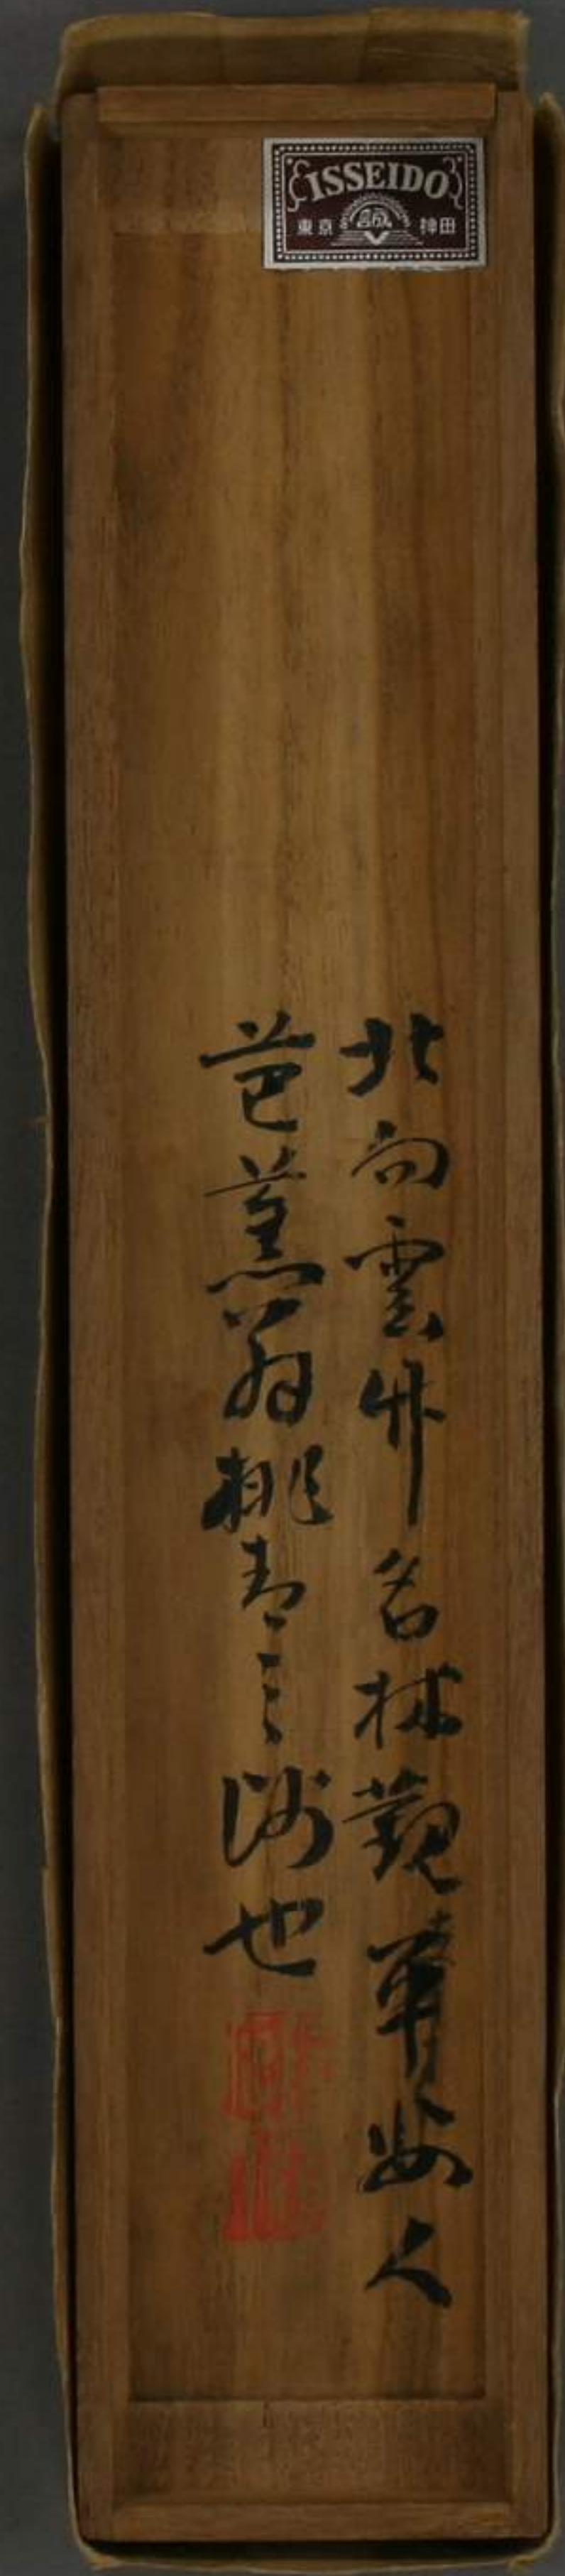 ISSEIDO
東京 誠 神田
北向雲竹名林観華洛人
芭蕉翁桃青之師也